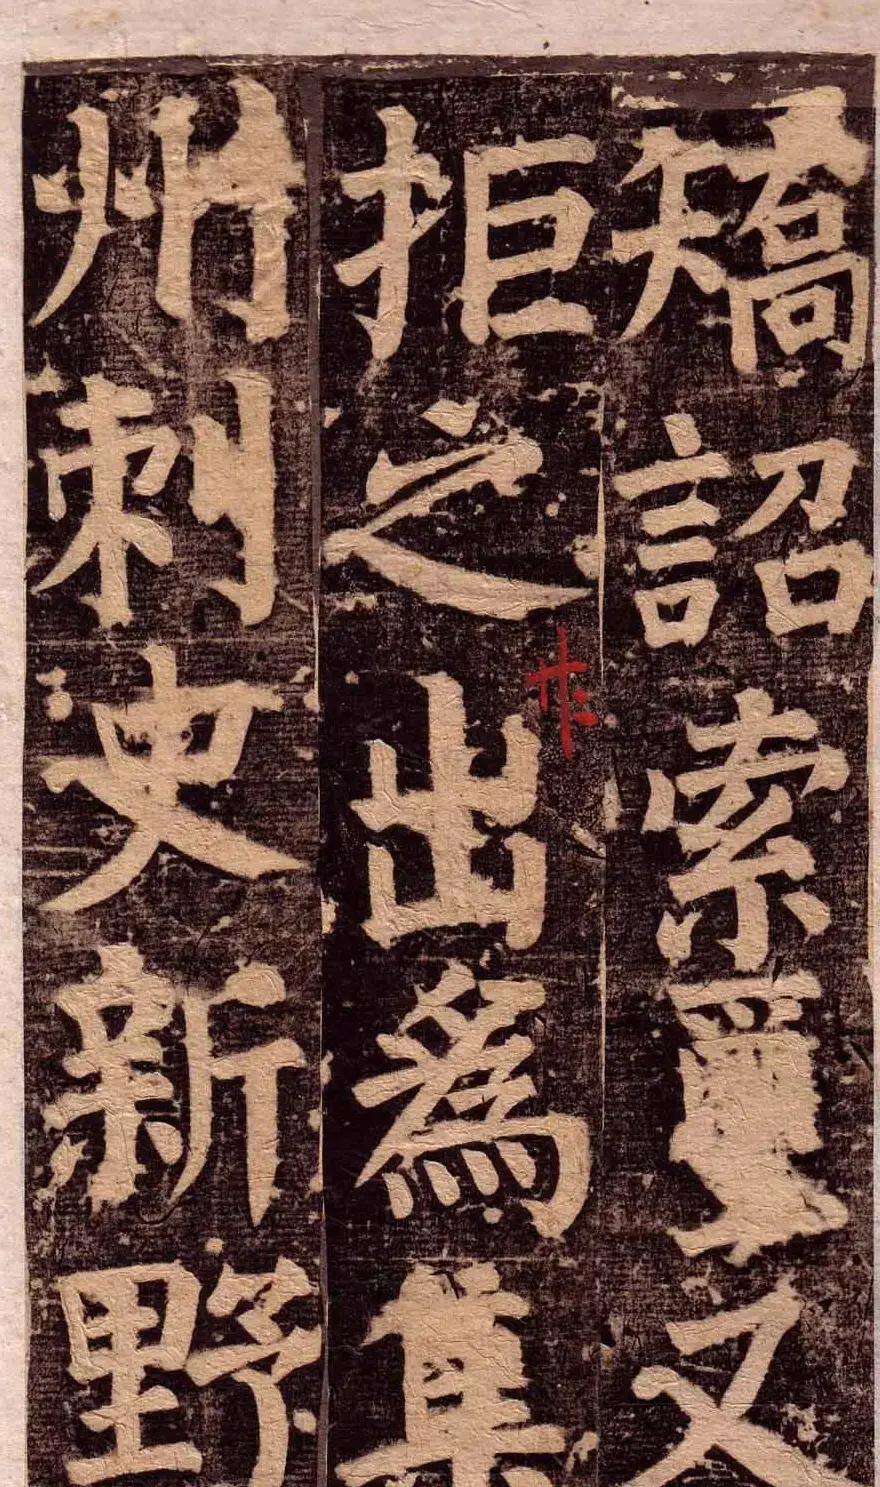 矯詔索璽又
拒之出為集
州刺史新野